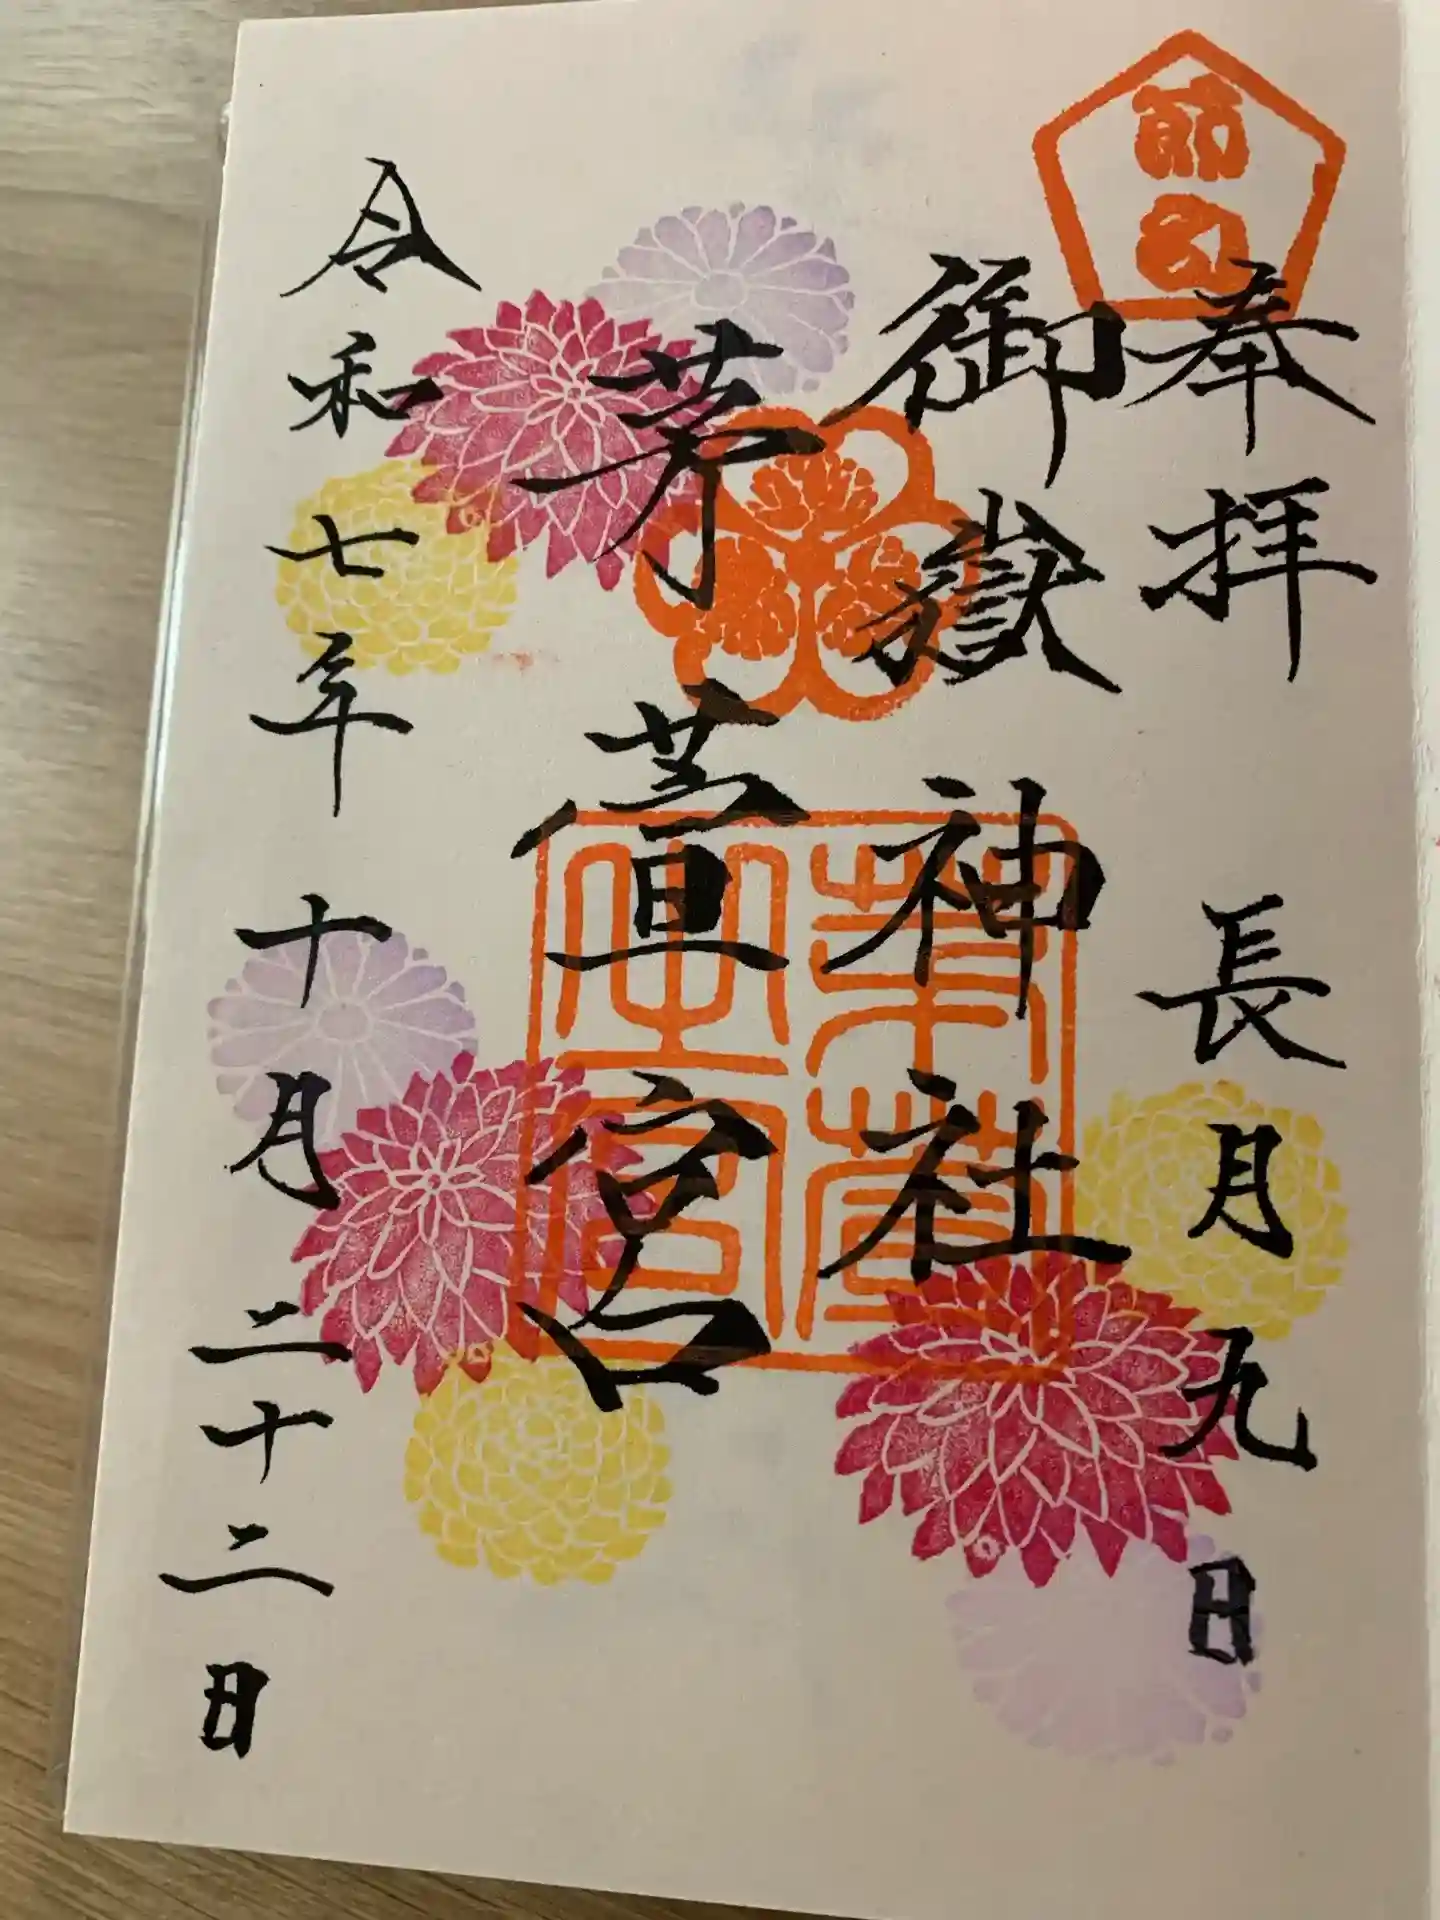 節句
奉拝 長月九日
御嶽神社
茅萱宮
茅萱之宮
令和七年十月二十二日